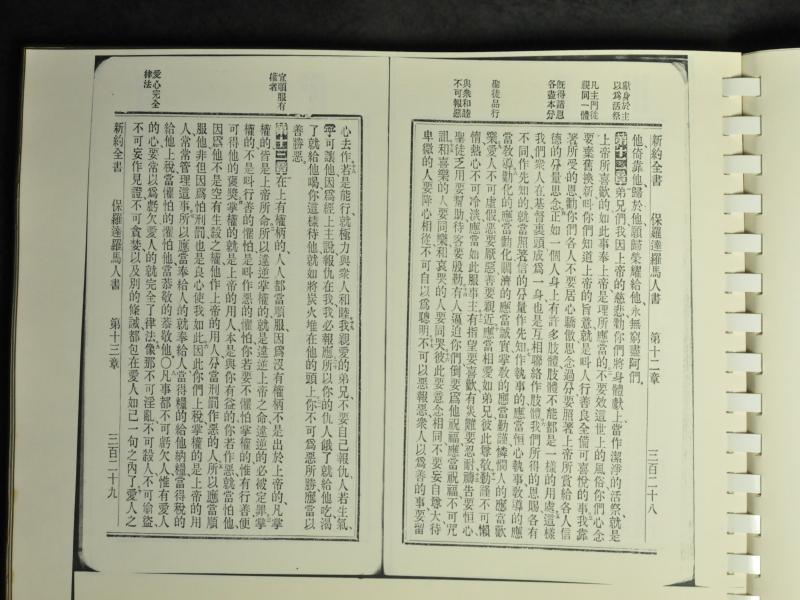 獻身於主
以爲活祭
凡主門徒
視同一體
旣得諸恩
各盡本分
聖徒品行
與衆和睦
不可報惡
新約全書 保羅達羅馬人書 第十二章 三百二十八
他倚靠他歸於他願榮耀給他永無窮盡阿們
第十二章弟兄們我因上帝的慈悲勸你們將身體獻上當作潔淨的活祭就是
上帝所喜歡的如此事奉上帝是理所應當的不要效這世上的風俗你們心念
要棄舊換新叫你們知道上帝的旨意就是叫人行善良全備可喜悅的事我靠
著所受的恩勸你們各人不要居心驕傲思念過分要照著上帝所賞給各人信
德的分量思念正如一個人身上有許多肢體肢體不能都是一樣的用處這樣
我們衆人在基督裏頭成爲一身也是互相聯絡作肢體我們所得的恩賜各有
不同作先知的就當照著信的分量作先知作執事的應當恒心執事敎導的應
當敎導勸化的應當勸化賙濟的應當誠實掌敎的應當勤謹憐憫人的應當歡
樂愛人不可虛假惡要厭惡善要親近應當相愛如弟兄彼此尊敬勤謹不可懶
惰熱心不可冷淡應當如此服事主有指望要喜歡有災難要忍耐禱告要恒心
聖徒乏用要幫助待客要殷勤有人逼迫你們倒要爲他祝福應當祝福不可咒
詛和喜樂的人要同樂和哀哭的人要同哭彼此要意念相同不要妄自尊大待
卑微的人要降心相從不可自以爲聰明不可以惡報惡衆人以爲善的事要留
宜順服有
權者
愛心完全
律法
心去作若是能行就極力與衆人和睦我親愛的弟兄不要自己報仇人若生氣
可讓他因爲經上主說報仇在我我必報應所以你的仇人餓了就給他吃渴
了就給他喝你這樣待他就如將炭火堆在他的頭上你不可爲惡所勝應當以
善勝惡
第十三章在上有權柄的人人都當順服因爲沒有權柄不是出於上帝的凡掌
權的皆是上帝所命所以違逆掌權的就是違逆上帝之命違逆的必被定罪掌
權的不是叫行善的懼怕是叫作惡的懼怕你若要不懼怕掌權的惟有行善便
可得他的褒獎掌權的就是上帝的用人本是與你有益的你若作惡就當怕他
因爲他不是空有生殺之權他作上帝的用人分當刑罰作惡的人所以應當順
服他非但因爲怕刑罰也是良心使我如此因此你們上稅掌權的是上帝的用
人常常管理這事所以應當奉給人的就奉給人當得糧的給他納糧當得稅的
給他上稅當懼怕的懼怕他當恭敬的恭敬他〇凡事都不可虧欠人惟有愛人
的心要常以爲虧欠愛人的就完全了律法像那不可淫亂不可殺人不可偷盜
不可妄作見證不可貪婪以及別的條誡都包在愛人如己一句之內了愛人之
新約全書 保羅達羅馬人書 第十三章 三百二十九